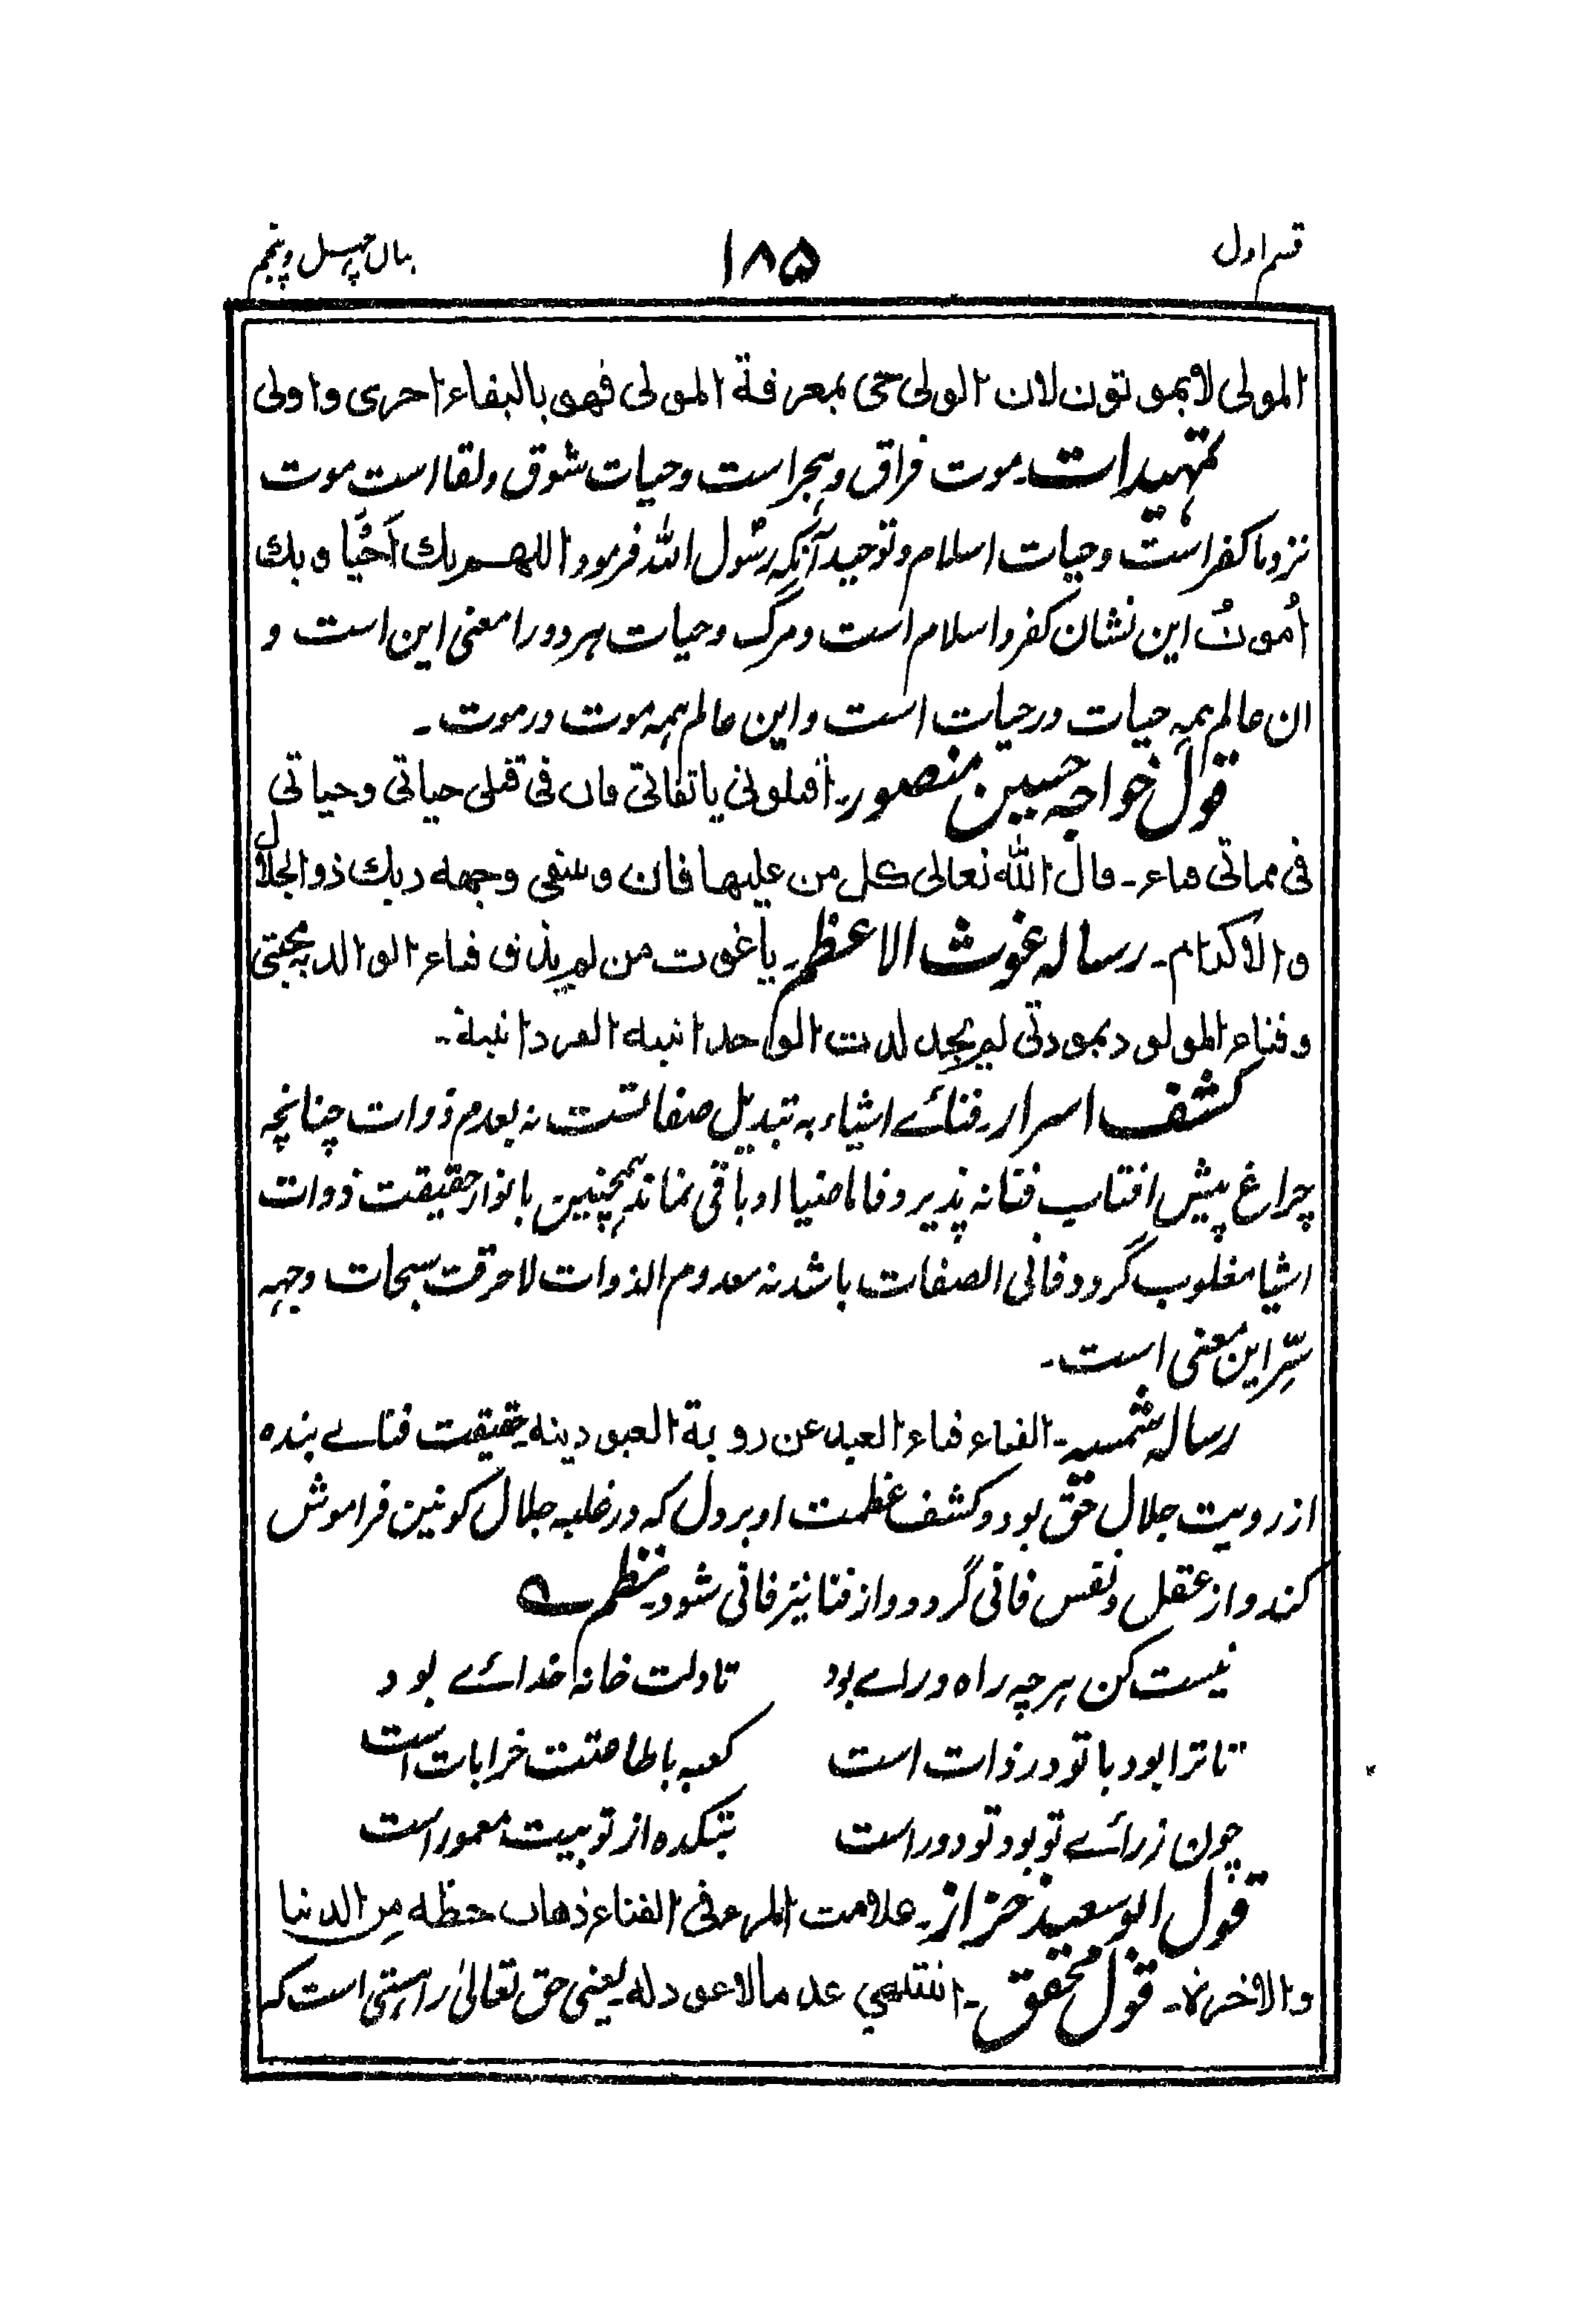 قسم اول
۱۸۵
بیان چہل و پنجم
المولى لا يموتون لان الولى حى بمعرفة المولى فهو بالبقاء احرى واولى
تمہیدات۔ موت فراق و ہجر است و حیات شوق و لقا است موت
نزد ما کفر است و حیات اسلام و توحید آنکہ رسول اللہ فرمود اللهم بك اَحْيَا و بك
اُموتُ این نشان کفر و اسلام است و مرگ و حیات ہر دو را معنی این است و
ان عالم ہمہ حیات در حیات است و این عالم ہمہ موت در موت۔
قول خواجہ حسین منصور۔ اقتلونى يا ثقاتى فان فى قتلى حياتى و حياتى
فى مماتى فناء۔ قال الله تعالى كل من عليها فان و يبقى وجهه ربك ذو الجلال
و الاكرام۔ رسالہ غوث الاعظم۔ يا غوث من لم يذق فناء الوالد بمحبتى
و فناء المولود بمودتى لم يجد لذت الواحدانية الفردانية۔
کشف اسرار۔ فنائے اشیاء بہ تبدیل صفاتست نہ بعدم ذوات چنانچہ
چراغ پیش افتاب فنا نہ پذیرد فاما ضیا او باقی نماند ہمچنین بانوار حقیقت ذوات
اشیا مغلوب گردد فانی الصفات باشد نہ معدوم الذوات لاحرقت سبحات وجہہ
سِرّ این معنی است۔
رسالہ شمسیہ۔ الفناء فناء العبد عن روية العبودية حقیقت فناے بندہ
از رویت جلال حق بود و کشف عظمت او بر دل کہ در غلبہ جلال کونین فراموش
کند و از عقل و نفس فانی گردد و از فنا نیز فانی شود۔ نظم
نیست کن ہرچہ راہ و راے بود تا دلت خانہ خدائے بود
تا ترا بود با تو در ذات است کعبہ با طاعتت خرابات است
چون ز رائے تو بود تو دور است بتکدہ از تو بیت معمور است
قول ابو سعید خزاز۔ علامت المرء فى الفناء ذهاب حظه من الدنيا
و الاخرة۔ قول محقق۔ انتهى عد مالا عود له یعنی حق تعالیٰ را ہستی است کہ